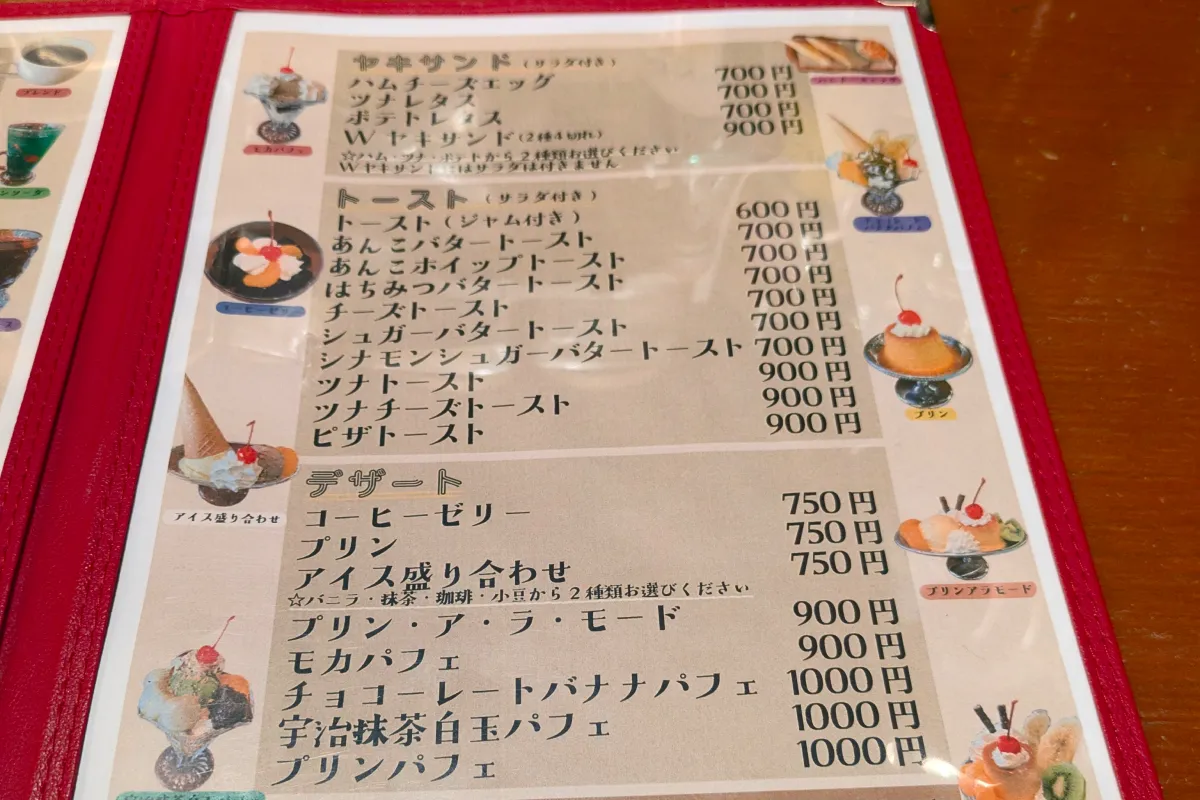 ブレンド
ヤキサンド（サラダ付き）
ハムチーズエッグ 700円
ツナレタス 700円
ポテトレタス 700円
Wヤキサンド（2種4切れ） 900円
☆ハム・ツナ・ポテトから2種類お選びください
Wヤキサンドにはサラダは付きません
トースト（サラダ付き）
トースト（ジャム付き） 600円
あんこバタートースト 700円
あんこホイップトースト 700円
はちみつバタートースト 700円
チーズトースト 700円
シュガーバタートースト 700円
シナモンシュガーバタートースト 700円
ツナトースト 900円
ツナチーズトースト 900円
ピザトースト 900円
デザート
コーヒーゼリー 750円
プリン 750円
アイス盛り合わせ 750円
☆バニラ・抹茶・珈琲・小豆から2種類お選びください
プリン・ア・ラ・モード 900円
モカパフェ 900円
チョコーレートバナナパフェ 1000円
宇治抹茶白玉パフェ 1000円
プリンパフェ 1000円
モカパフェ
コーヒーゼリー
アイス盛り合わせ
プリン
プリンアラモード